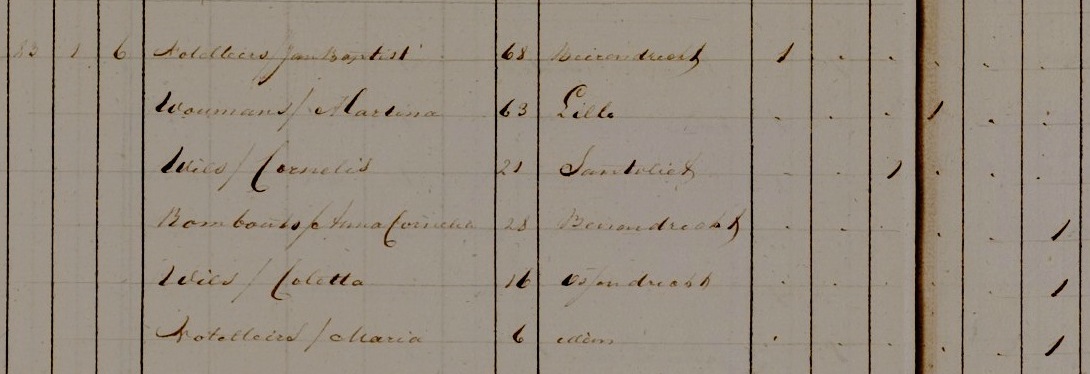 83 1 6 Notelteirs / Jan Baptist 68 Beirendrecht 1
Woumans / Martina 63 Lillo 1
Wils / Cornelis 21 Santvliet 1
Rombouts / Anna Cornelia 28 Beirendrecht 1
Wils / Coletta 16 Ossendrecht 1
Notelteirs / Maria 6 idem 1